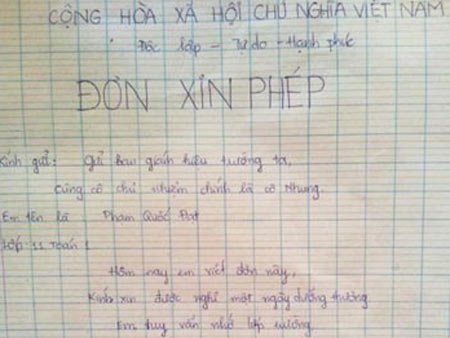 CỘNG HÒA XÃ HỘI CHỦ NGHĨA VIỆT NAM
Độc lập - Tự do - Hạnh phúc
ĐƠN XIN PHÉP
Kính gửi: Gửi ban giám hiệu trường ta,
Cùng cô chủ nhiệm chính là cô Nhung.
Em tên là Phạm Quốc Đạt
Lớp 11 Toán 1
Hôm nay em viết đơn này,
Kính xin được nghỉ một ngày dưỡng thương
Em tuy vẫn nhớ lớp trường